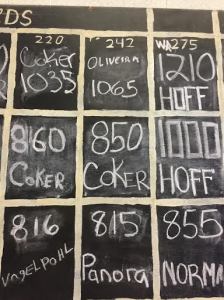 RDS
220 242 WA275
Coker OLIVEIRA 1210
1035 1065 HOFF
860 850 1000
COKER COKER HOFF
816 815 855
VOGELPOHL Panora NORMA